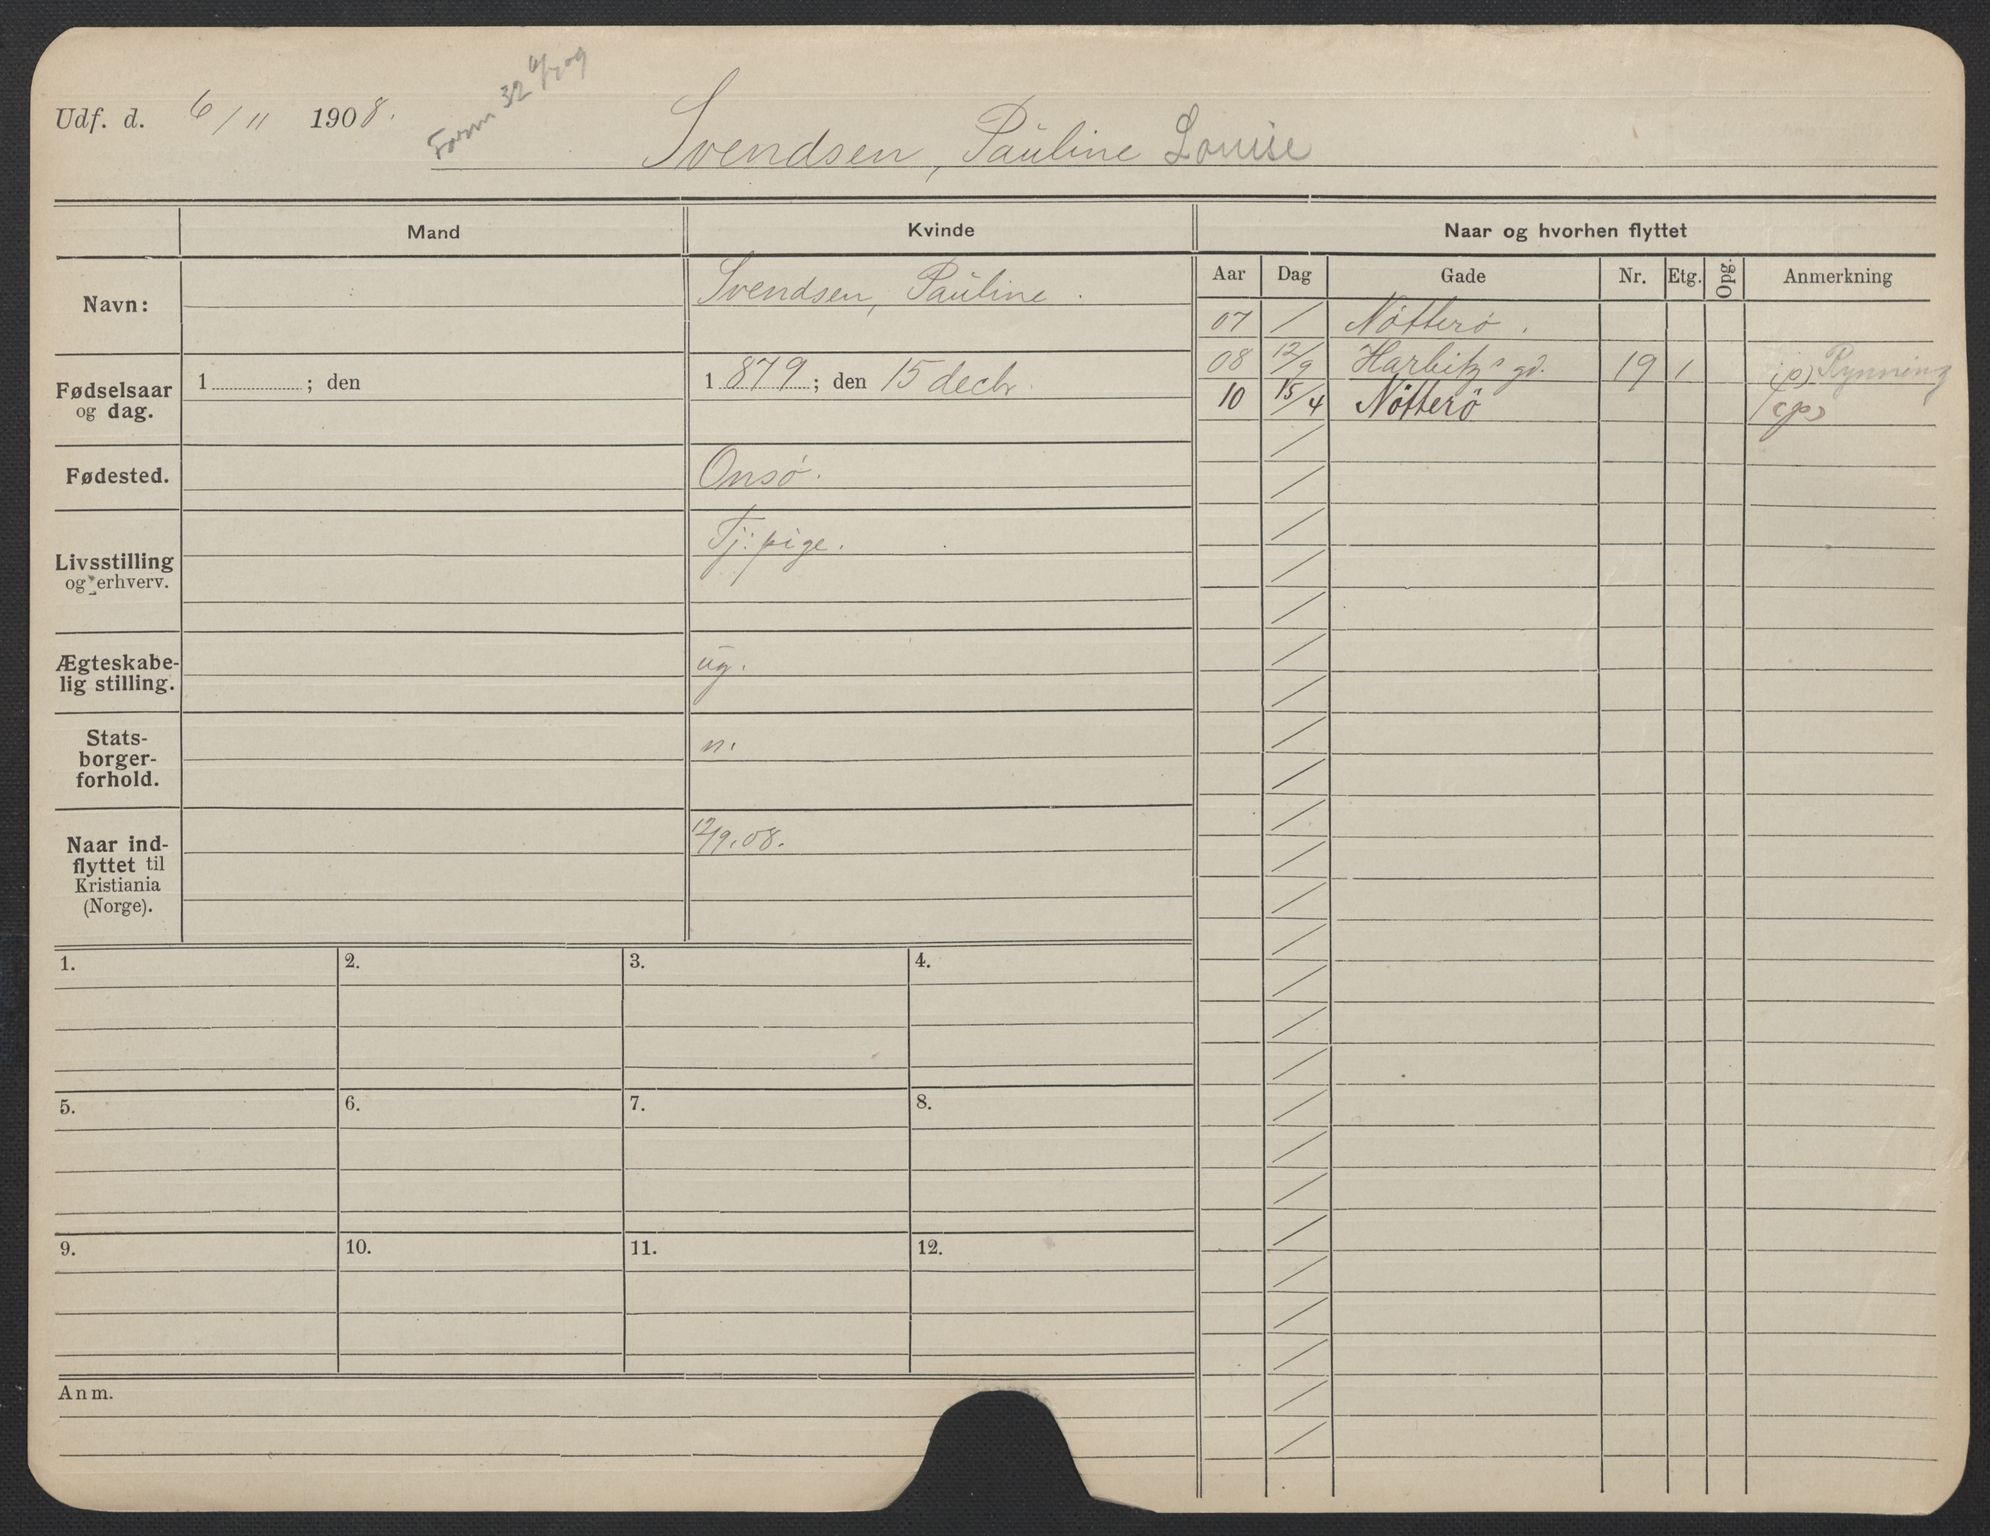 Udf. d. 6/11 1908.
Form 32
Svendsen, Pauline Louise
Mand Kvinde Naar og hvorhen flyttet
Aar Dag Gade Nr. Etg. Opg. Anmerkning
Navn: Svendsen, Pauline.
07 / Nötterö.
08 12/9 Harbitz's gd. 19 1 (p) Rynning
10 15/4 Nötterö (p)
Fødselsaar og dag.
1 ; den 1 879 ; den 15 decbr
Fødested. Onsö.
Livsstilling og erhverv. Tj: pige.
Ægteskabe-
lig stilling. ug.
Stats-
borger-
forhold. n.
Naar ind-
flyttet til
Kristiania
(Norge). 12/9.08.
1. 2. 3. 4.
5. 6. 7. 8.
9. 10. 11. 12.
Anm.